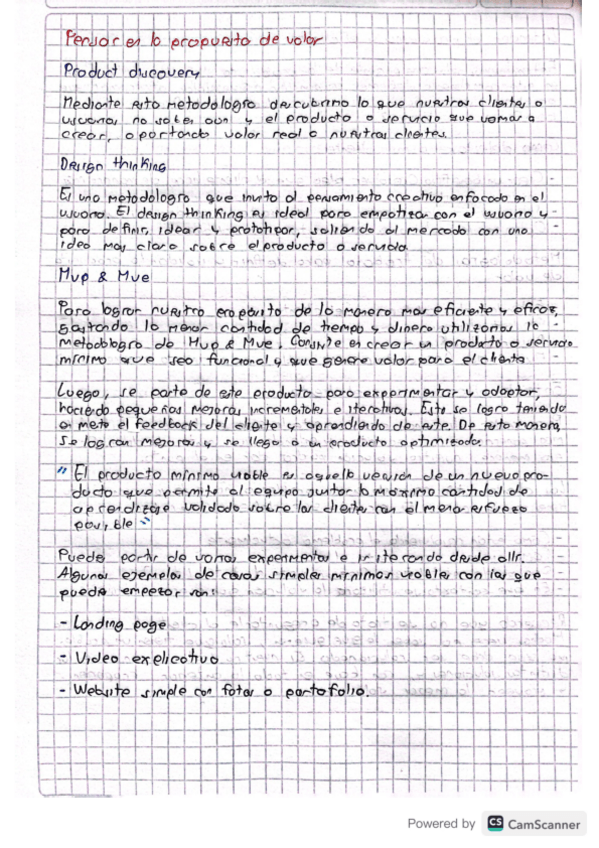 Pensar en la propuesta de valor
Product discovery
Mediante esta metodología descubrimo lo que nuestros clientes o
usuarios no saben aun y el producto o servicio que vamos a
crear, aportando valor real a nuestros clientes.
Design thinking
Es una metodología que invita al pensamiento creativo enfocado en el
usuario. El design thinking es ideal para empatizar con el usuario y
para definir, idear y prototipar, saliendo al mercado con una
idea mas clara sobre el producto o servicio.
Mvp & Mve
Para lograr nuestro proposito de la manera mas eficiente y eficaz,
gastando la menor cantidad de tiempo y dinero utilizamos la
metodología de Mvp & Mve. Consiste en crear un producto o servicio
mínimo que sea funcional y que genere valor para el cliente
Luego, se parte de este producto para experimentar y adaptar,
haciendo pequeñas mejoras incrementales e iterativas. Esto se logra teniendo
el meta el feedback del cliente y aprendiendo de este. De esta manera,
se logran mejoras y se llega a un producto optimizado.
" El producto mínimo viable es aquella versión de un nuevo pro-
ducto que permite al equipo juntar la máxima cantidad de
aprendizaje validado sobre los clientes con el menor esfuerzo
posible "
Puede partir de varios experimentos e ir iterando desde allí.
Algunos ejemplos de cosas simples mínimas viables con las que
puede empezar son:
- Landing page
- Video explicativo
- Website simple con fotos o portafolio.
Powered by CS CamScanner